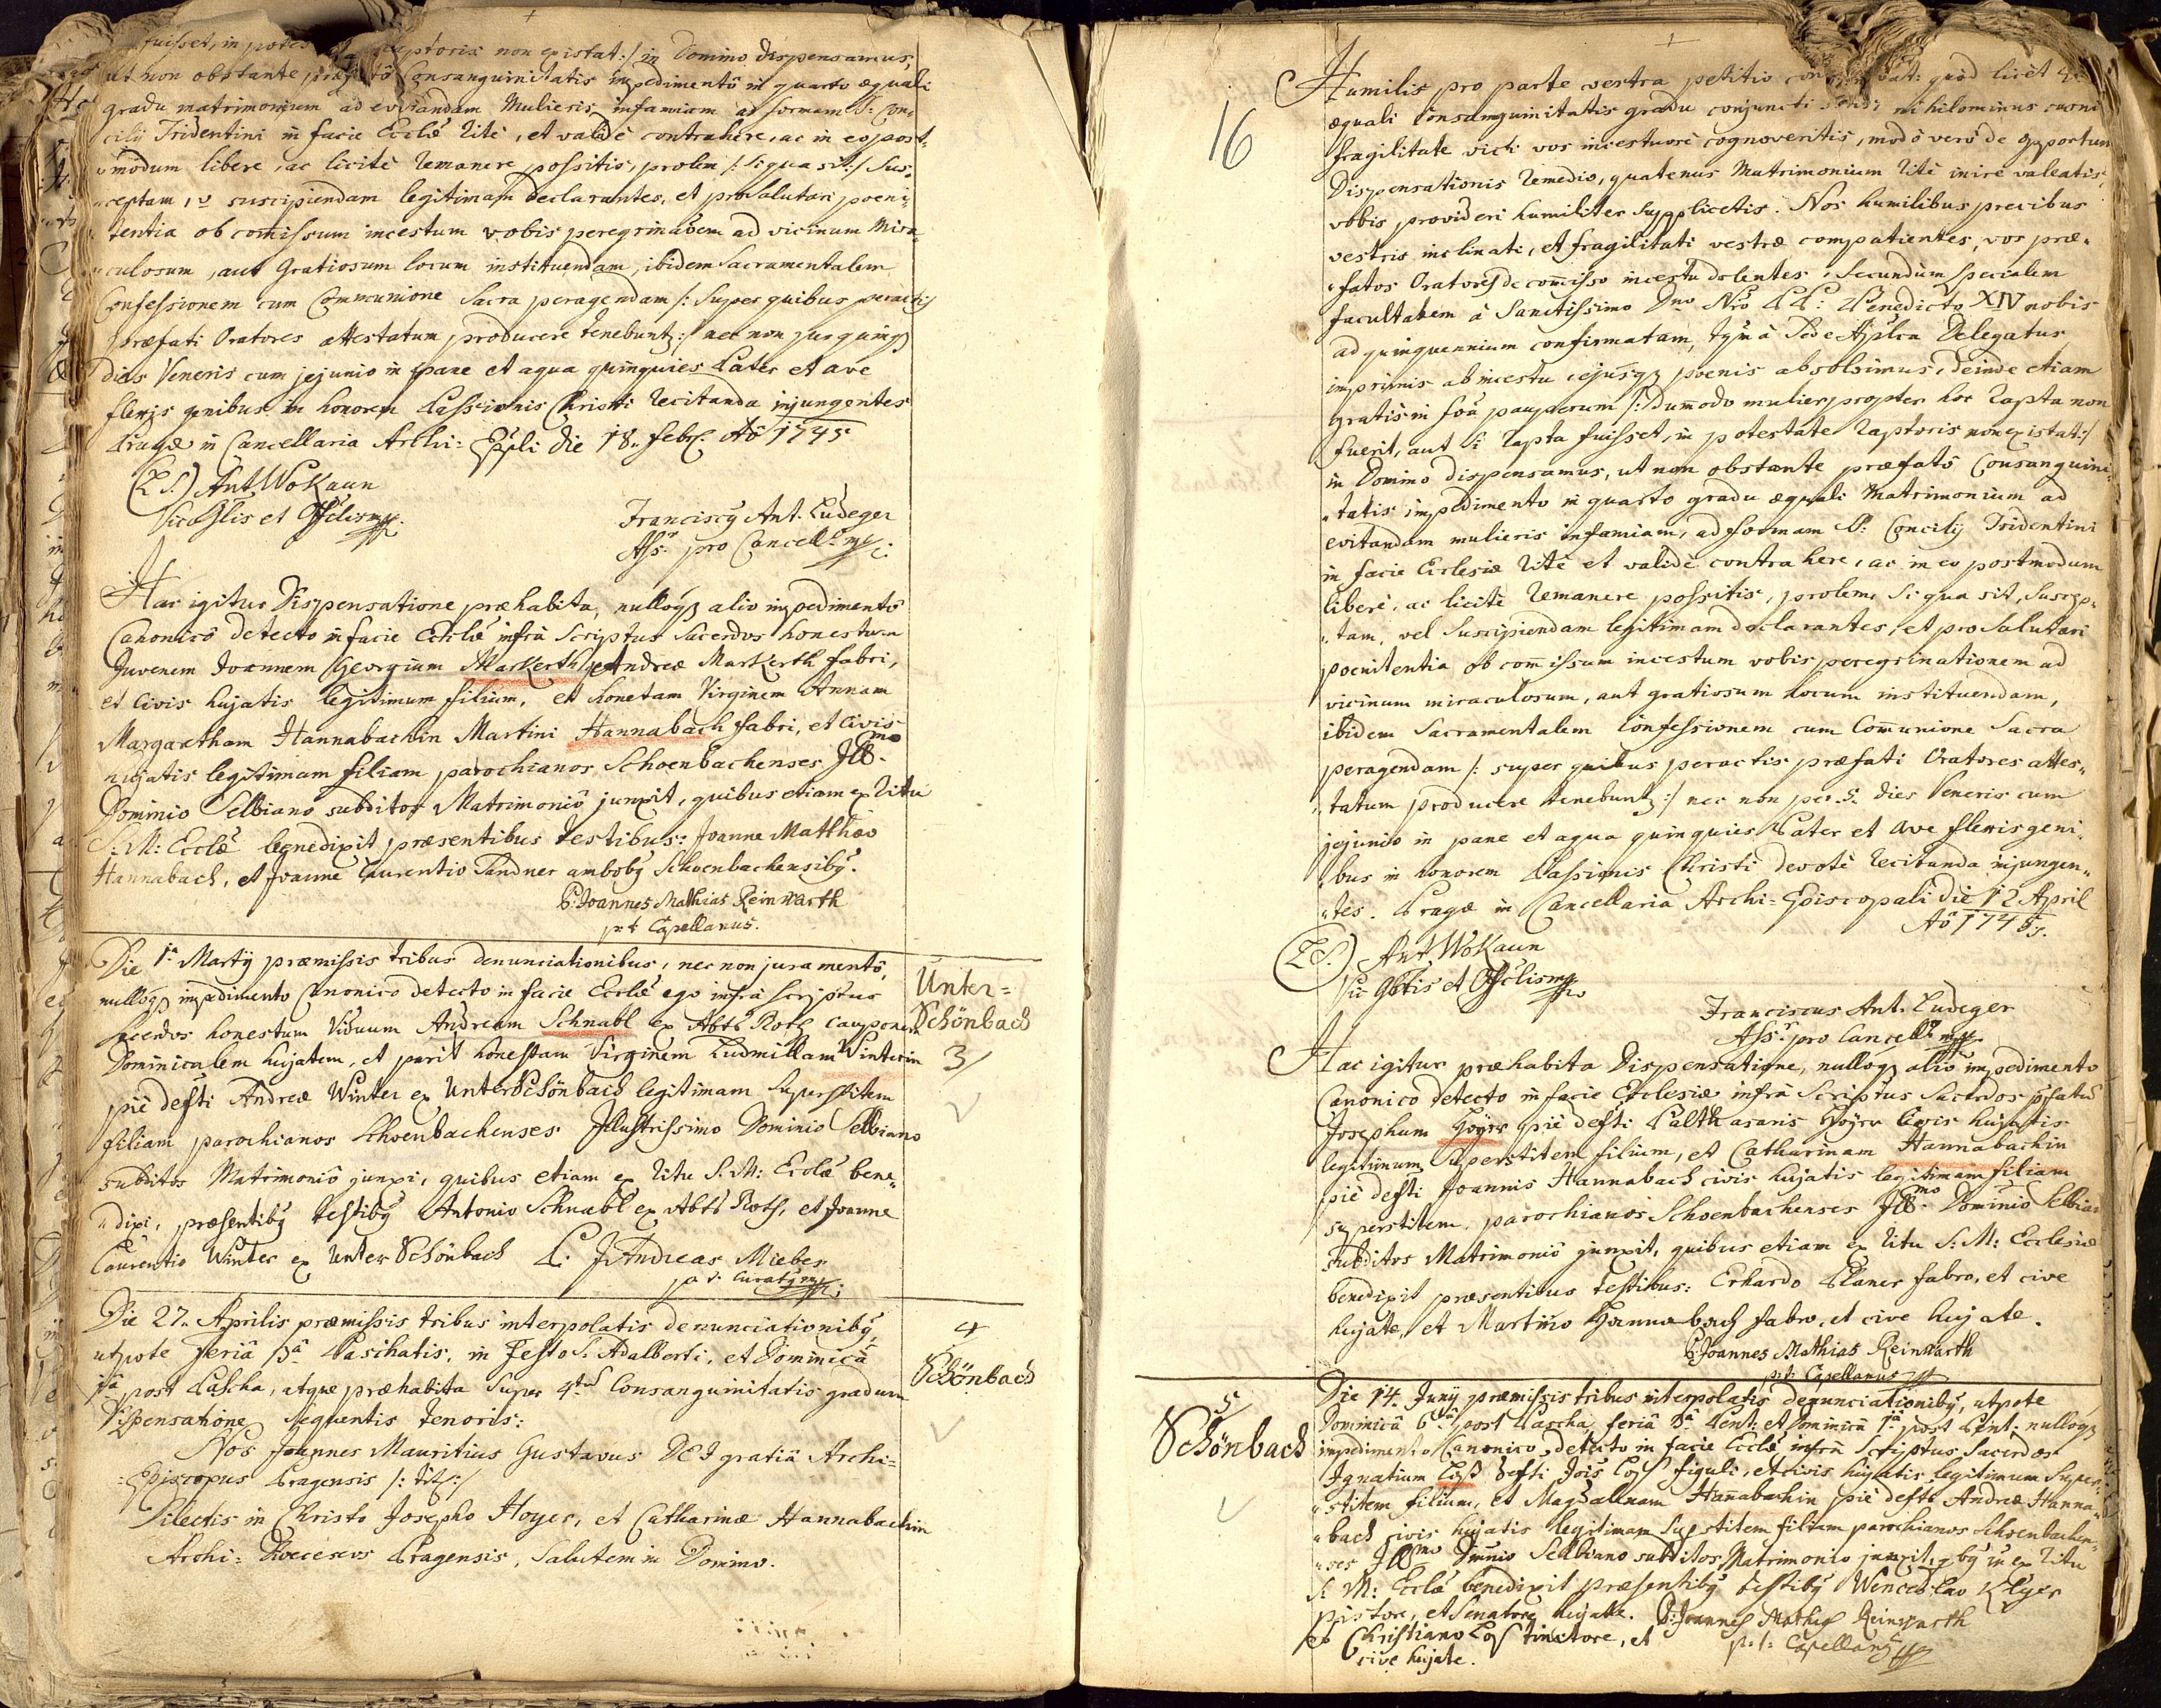 fuisset, in potes raptoris non existat:/ in Domino dispensamus,
ut non obstante præfatô Consanguinitatis impedimentô in quarto æquali
gradu matrimonium ad evitandam Mulieris infamiam ad formam S: Con-
cilij Tridentini in facie Ecclæ ritè, et validè contrahere, ac in eo post-
modum libere, ac licitè remanere possitis, prolem /: si qua sit:/ sus-
ceptam, vl suscipiendam legitimam declarantes, et pro salutari poeni-
tentia ob comissum incestum vobis peregrinaõem ad vicinum Mira-
culosum, aut Gratiosum locum instituendam, ibidem Sacramentalem
Confessionem cum Communione Sacra peragendam /: super quibus peractis
præfati Oratores attestatum producere tenebuntr:/ nec non per quinq
dies Veneris cum jejunio in pane et aqua quinquies Pater et ave
flexis genibus in honorem Passionis Christi recitanda injungentes
Pragæ in Cancellaria Archi-Eppli die 18. Febr. Aô 1745
(L S.) Ant. Wokaun
Vic Glis et Offclis mp.
Franciscy Ant. Ludeger
Ass.r pro Cancell.o mp
Hac igitur Dispensatione præhabita, nullôq alio impedimentô
Canonicô detecto in facie Ecclæ infrà scriptus Sacerdos honestum
Juvenem Joannem Georgium Markerth Andreæ Markerth fabri,
et Civis hujatis legitimum filium, et honestam Virginem Annam
Margaretham Hannabachin Martini Hannabach fabri, et Civis
hujatis legitimam filiam parochianos Schoenbachenses Ill.mo
Dominio Selbiano subditos Matrimoniô junxit, quibus etiam ex ritu
S: M: Ecclæ benedixit præsentibus testibus: Joanne Mathæo
Hannabach, et Joanne Laurentio Sandner ambobg Schoenbachensibg.
P: Joannes Mathias Reinwarth
p: t: Capellanus.
Die 1a Martij præmissis tribus denunciationibus, nec non juramentô,
nullôq impedimento Canonico detecto in facie Ecclæ ego infrà scriptus
Sacerdos honestum Viduum Andream Schnabl ex Abts Roth cauponem
Dominicalem hujatem, et parit honestam Virginem Ludmillam Winterin
piè defti Andreæ Winter ex Unterschönbach legitimam superstitem
filiam parochianos Schoenbachenses Illustrissimo Dominio Selbiano
subditos Matrimoniô junxi, quibus etiam ex ritu S. M: Ecclæ bene-
dixi, præsentibg testibg Antonio Schnabl ex Abts Roth, et Joanne
Laurentio Winter ex Unter Schönbach P. J Andreas Mieber
p. t. Curatg mp
Unter=
Schönbach
3/
Die 27. Aprilis præmissis tribus interpolatis denunciationibg,
utpote feriâ 3â Paschatis, in Festo S. Adalberti, et Dominicâ
1â post Pascha, atque præhabita super 4tus Consanguinitatis gradum
Dispensatione sequentis tenoris:
Nos Joannes Mauritius Gustavus DEI gratiâ Archi=
=Episcopus Pragensis /: tit:/
Dilectis in Christo Josepho Hoyer, et Catharinæ Hannabachin
Archi= Dioeceseos Pragensis, Salutem in Domino.
4
Schönbach
16
Humilis pro parte vestra petitio quôd licèt
æquali Consanguinitatis gradu conjuncti nihilominus carni
fragilitate victi vos incestuosè cognoveritis, modò verò de opportun
Dispensationis remedio, quatenus Matrimonium ritè inire valeatis,
vobis provideri humiliter supplicetis. Nos humilibus precibus
vestris inclinati, et fragilitati vestræ compatientes, vos præ-
fatos Oratores de comisso incestu dolentes, secundùm specialem
facultatem à Sanctissimo Dno Nro PP: Benedicto XIV nobis
ad quinquennium confirmatam, tqm à Sede Aplca Delegatus
imprimis ab incestu, ejusq poenis absolvimus, deinde etiam
gratis in foâ pauperum /: dummodo mulier propter hoc rapta non
fuerit, aut si rapta fuisset, in potestate raptoris non existat:/
in Domino dispensamus, ut non obstante præfatô Consanguini-
tatis impedimento in quarto gradu æquali Matrimonium ad
evitandam mulieris infamiam, ad formam S: Concilij Tridentini
in facie Ecclesiæ ritè et validè contrahere, ac in eo postmodum
liberè, ac licitè remanere possitis, prolem, si qua sit, suscep-
tam, vel suscipiendam legitimam declarantes, et pro salutari
poenitentia ob commissum incestum vobis peregrinationem ad
vicinum miraculosum, aut gratiosum locum instituendam,
ibidem Sacramentalem Confessionem cum Communione Sacra
peragendam /: super quibus peractis præfati Oratores attes-
tatum producere tenebuntr:/ nec non per 5. dies Veneris cum
jejunio in pane et aqua quinquies Pater et Ave flexis geni-
bus in honorem Passionis Christi devotè recitanda injungen-
tes. Pragæ in Cancellaria Archi=Episcopali die 12 April
Aô 1745.
(L S.) Ant Wokaun
Vic Glis et Offclis mp
Franciscus Ant. Ludeger
Ass.r pro Cancell.o mp
Hac igitur præhabita Dispensatione, nullôq aliô impedimento
Canonico detecto in facie Ecclesiæ infrà scriptus Sacerdos pfatus
Josephum Hoyer piè defti Balthasaris Hoyer Civis hujatis
legitimum superstitem filium, et Catharinam Hannabachin
piè defti Joannis Hannabach civis hujatis legitimam filiam
superstitem, parochianos Schoenbachenses Ill.mo Dominio Selbian
subditos Matrimoniô junxit, quibus etiam ex ritu S: M: Ecclesiæ
benedixit præsentibus testibus: Erhardo Planer fabro, et cive
hujate, et Martino Hannabach fabro, et cive hujate.
P: Joannes Mathias Reinwarth
p: t: Capellanus
5/
Schönbach
Die 14. Junij præmissis tribus interpolatis denunciationibg, utpote
Dominicâ 6tâ post Pascha, feriâ 3â Pent: et Dominicâ 1â post Pent: nullôq
impedimento Canonico detecto in facie Ecclæ infrà scriptus Sacerdos
Ignatium Loß defti Jois Loß figuli, et civis hujatis legitimum super-
stitem filium, et Magdalenam Hannabachin piè defti Andreæ Hanna-
bach civis hujatis legitimam superstitem filiam parochianos Schoenbachen-
ses Ill.mo Dominio Selbiano subditos Matrimonio junxit, qbg ex ritu
S. M: Ecclæ benedixit præsentibg testibg Wenceslao Klyer
pistore, et Senatore hujate. P: Joannes Mathias Reinwarth
et Christiano Loß tinctore, et p: t: Capellang
cive hujate.